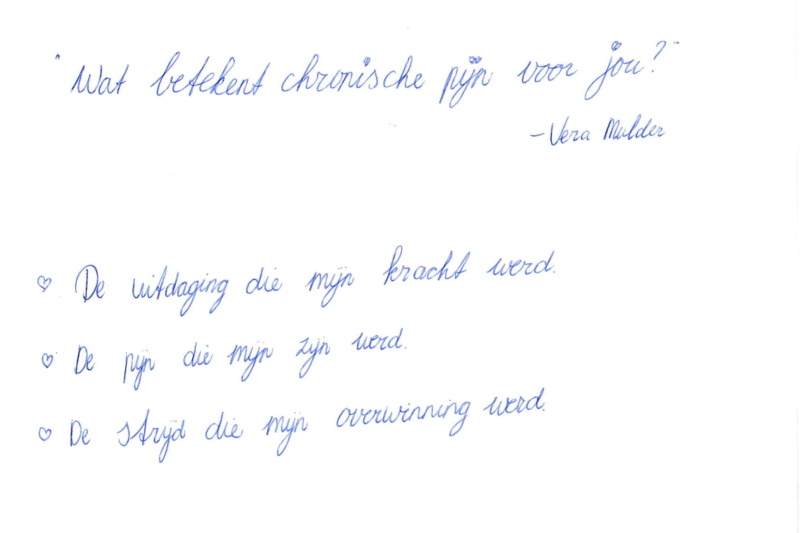 "Wat betekent chronische pijn voor jou?"
-Vera Mulder
♡ De uitdaging die mijn kracht werd.
♡ De pijn die mijn zijn werd.
♡ De strijd die mijn overwinning werd.